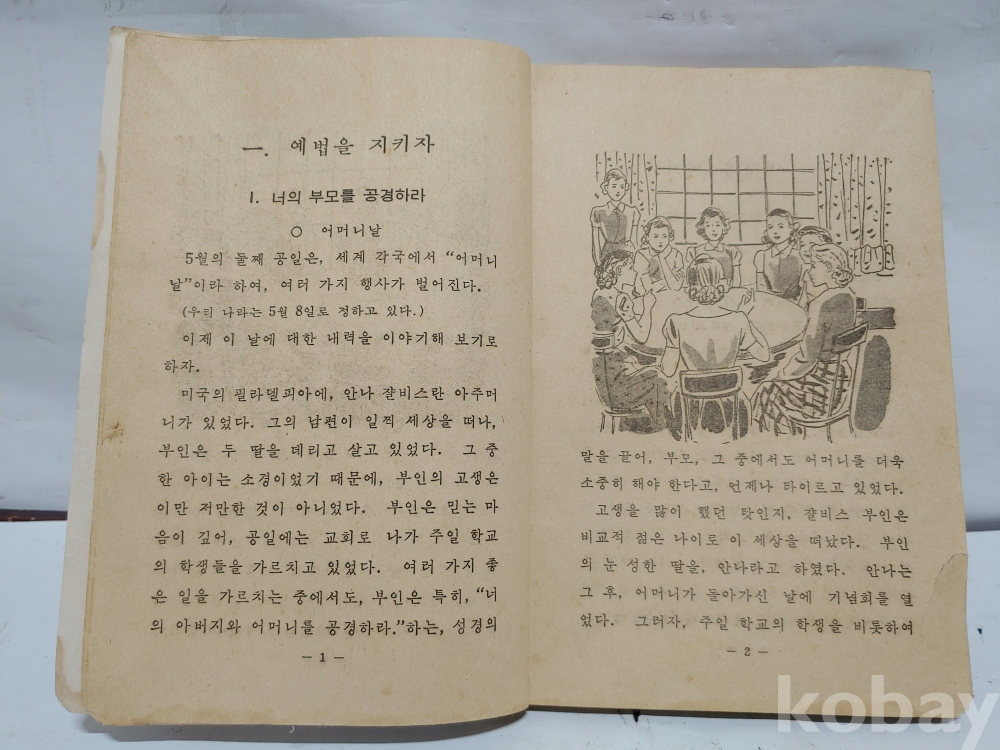 一. 예법을 지키자
1. 너의 부모를 공경하라
○ 어머니날
5월의 둘째 공일은, 세계 각국에서 “어머니
날”이라 하여, 여러 가지 행사가 벌어진다.
(우리 나라는 5월 8일로 정하고 있다.)
이제 이 날에 대한 내력을 이야기해 보기로
하자.
미국의 필라델피아에, 안나 쟐비스란 아주머
니가 있었다. 그의 남편이 일찍 세상을 떠나,
부인은 두 딸을 데리고 살고 있었다. 그 중
한 아이는 소경이었기 때문에, 부인의 고생은
이만 저만한 것이 아니었다. 부인은 믿는 마
음이 깊어, 공일에는 교회로 나가 주일 학교
의 학생들을 가르치고 있었다. 여러 가지 좋
은 일을 가르치는 중에서도, 부인은 특히, “너
의 아버지와 어머니를 공경하라.”하는, 성경의
— 1 —
말을 끌어, 부모, 그 중에서도 어머니를 더욱
소중히 해야 한다고, 언제나 타이르고 있었다.
고생을 많이 했던 탓인지, 쟐비스 부인은
비교적 젊은 나이로 이 세상을 떠났다. 부인
의 눈 성한 딸을, 안나라고 하였다. 안나는
그 후, 어머니가 돌아가신 날에 기념회를 열
었다. 그러자, 주일 학교의 학생을 비롯하여
— 2 —
kobay